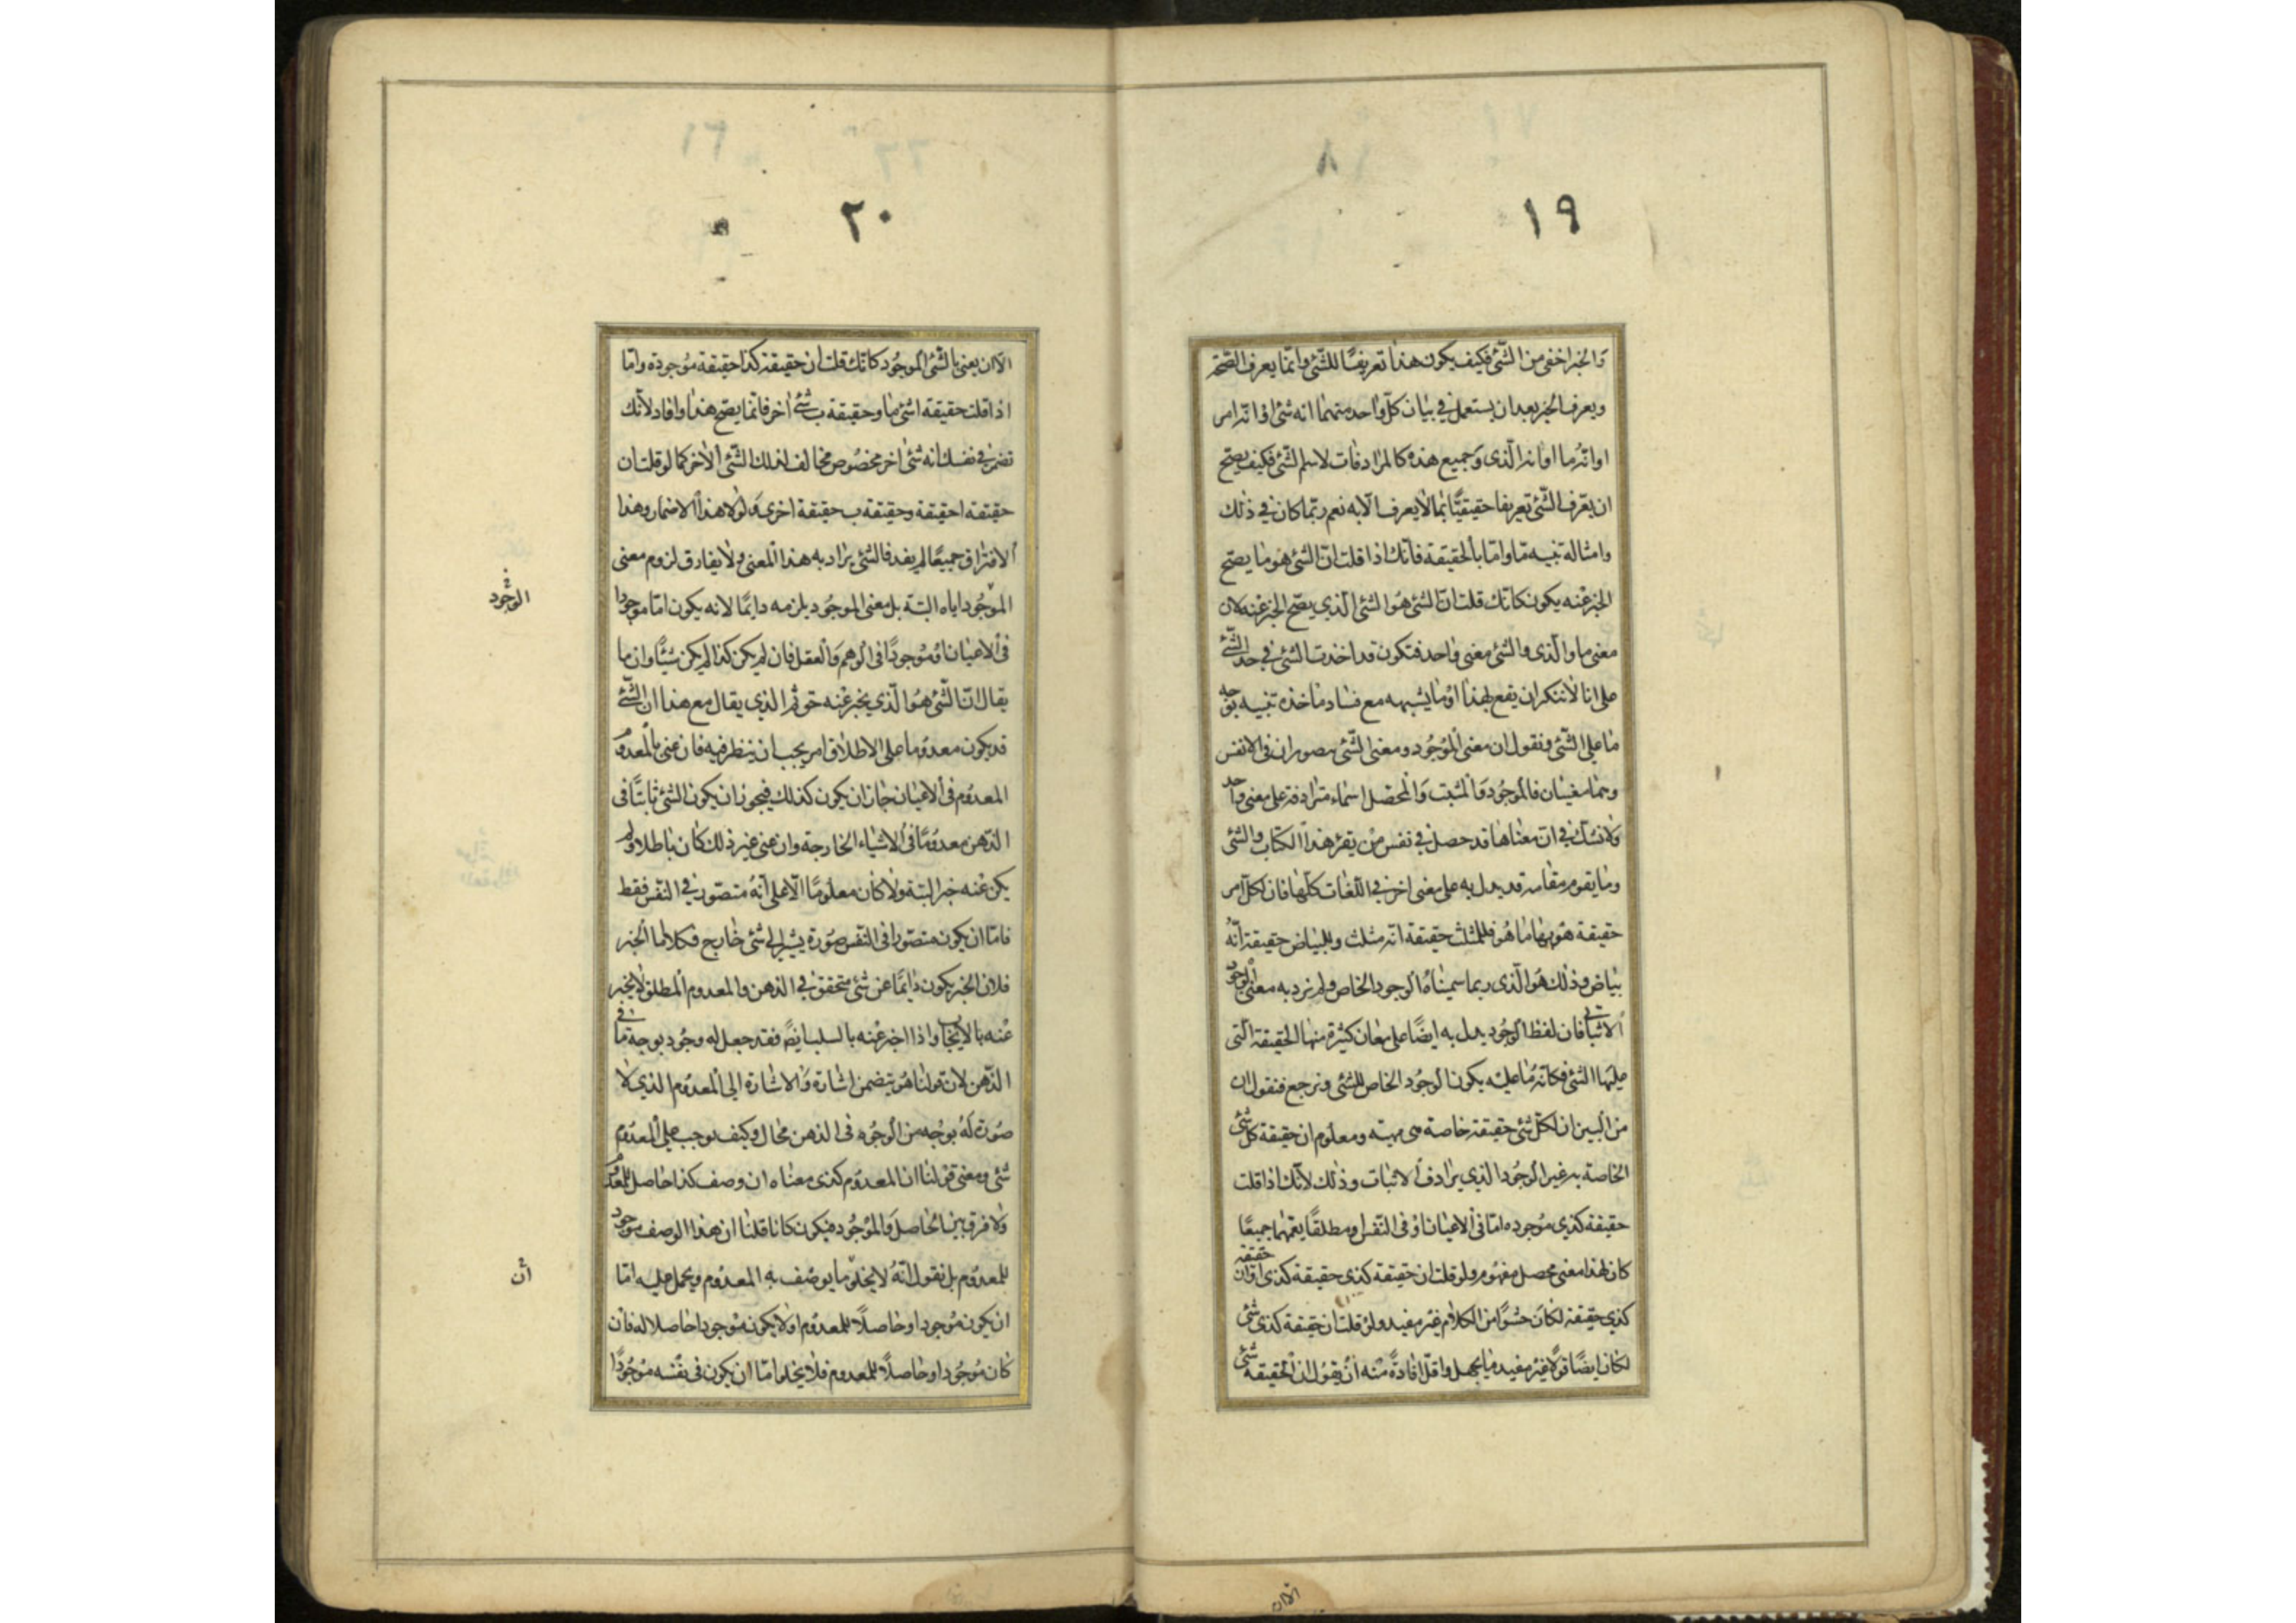 ١٩
والخبر اخفى من الشئ فكيف يكون هذا تعريفا للشئ وانما يعرف الصحة
ويعرف الخبر بعد ان يستعمل في بيان كل واحد منهما انه شئ او انه امر
او انه ما او انه الذى وجميع هذه كالمرادفات لاسم الشئ فكيف يصح
ان يعرف الشئ تعريفا حقيقيا بما لا يعرف الا به نعم ربما كان في ذلك
وامثاله تنبيه ما واما بالحقيقة فانك اذا قلت ان الشئ هو ما يصح
الخبر عنه يكون كانك قلت ان الشئ هو الشئ الذي يصح الخبر عنه لان
معنى ما والذى والشئ معنى واحد فتكون قد اخذت الشئ في حد الشئ
على انا لا ننكر ان يقع بهذا او ما يشبهه مع فساد ماخذه تنبيه بوجه
ما على الشئ ونقول ان معنى الموجود ومعنى الشئ متصوران في الانفس
وهما معنيان فالموجود والمثبت والمحصل اسماء مترادفة على معنى واحد
ولا نشك في ان معناها قد حصل في نفس من يقرء هذا الكتاب والشئ
وما يقوم مقامه قد يدل به على معنى اخر في اللغات كلها فان لكل امر
حقيقة هو بها ما هو فللمثلث حقيقة انه مثلث وللبياض حقيقة انه
بياض وذلك هو الذى ربما سميناه الوجود الخاص ولم نرد به معنى الوجود
الاثباتي فان لفظ الوجود يدل به ايضا على معان كثيرة منها الحقيقة التى
عليها الشئ فكانه ما عليه يكون الوجود الخاص للشئ ونرجع فنقول ان
من البين ان لكل شئ حقيقة خاصة هى مهيته ومعلوم ان حقيقة كل شئ
الخاصة به غير الوجود الذي يرادف الاثبات وذلك لانك اذا قلت
حقيقة كذى موجوده اما في الاعيان او فى النفس او مطلقا يعمهما جميعا
كان لهذا معنى محصل مفهوم ولو قلت ان حقيقة كذى حقيقة كذى او ان حقيقة
كذي حقيقة لكان حشوا من الكلام غير مفيد ولو قلت ان حقيقة كذى شئ
لكان ايضا قولا غير مفيد ما يجهل واقل افادة منه ان يقول ان الحقيقة شئ
٢٠
الا ان يعنى بالشئ الموجود كانك قلت ان حقيقة كذا حقيقة موجودة واما
اذا قلت حقيقة ا شئ ما وحقيقة ب شئ اخر فانما يصح هذا وافاد لانك
تضمر في نفسك انه شئ اخر مخصوص مخالف لذلك الشئ الاخر كما لو قلت ان
حقيقة ا حقيقة وحقيقة ب حقيقة اخرى ولولا هذا الاضمار وهذا
الافتراق جميعا لم يفد فالشئ يراد به هذا المعنى ولا يفارق لزوم معنى
الموجود اياه البتة بل معنى الموجود يلزمه دايما لانه يكون اما موجودا
في الاعيان او موجودا فى الوهم والعقل فان لم يكن كذا لم يكن شيئا وان ما
يقال ان الشئ هو الذي يخبر عنه حق ثم الذي يقال مع هذا ان الشئ
قد يكون معدوما على الاطلاق امر يجب ان ينظر فيه فان عنى بالمعدوم
المعدوم فى الاعيان جاز ان يكون كذلك فيجوز ان يكون الشئ ثابتا فى
الذهن معدوما فى الاشياء الخارجة وان عنى غير ذلك كان باطلا ولم
يكن عنه خبر البتة ولا كان معلوما الا على انه متصور في النفس فقط
فاما ان يكون متصورا فى النفس صورة يشير الي شئ خارج فكلا اما الخبر
فلان الخبر يكون دايما عن شئ متحقق في الذهن والمعدوم المطلق لا يخبر
عنه بالايجاب واذا اخبر عنه بالسلب ايضا فقد جعل له وجود بوجه ما في
الذهن لان قولنا هو يتضمن اشارة والاشارة الي المعدوم الذي لا
صورة له بوجه من الوجوه فى الذهن محال وكيف يوجب على المعدوم
شئ ومعنى قولنا ان المعدوم كذى معناه ان وصف كذا حاصل للمعدوم
ولا فرق بين الحاصل والموجود فيكون كانا قلنا ان هذا الوصف موجود
للمعدوم بل نقول انه لا يخلو ما يوصف به المعدوم ويحمل عليه اما
ان يكون موجودا وحاصلا للمعدوم او لا يكون موجودا حاصلا له فان
كان موجودا وحاصلا للمعدوم فلا يخلو اما ان يكون فى نفسه موجودا
الوجود
ان